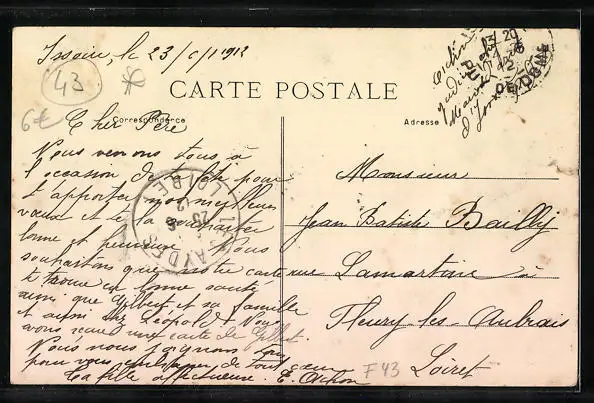 Issoire, le 23/6/1912
43
6€
CARTE POSTALE
Correspondance
Adresse
Cher Père
Nous venons tous à
l'occasion de ta fête pour
t'apporter nos meilleurs
vœux et te la souhaiter
bonne et heureuse. Nous
souhaitons que notre carte
te trouve en bonne santé
ainsi que Gilbert et sa famille
et aussi chez Léopold. Nous
avons recu une carte de Gilbert.
Nous nous joignons tous
pour vous embrasser de tout cœur
Ta fille affectueuse. E. Ochon
Monsieur
Jean Batiste Bailly
rue Lamartine à
Fleury-les-Aubrais
Loiret
F 43
LOIRET
25
PUY DE DOME